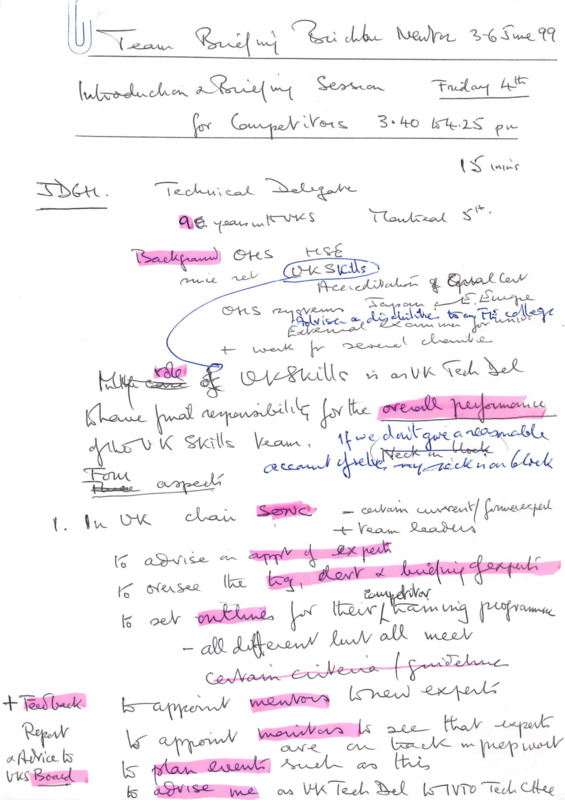 Team Briefing Brighton Mentor 3-6 June 99
Introduction & Briefing Session Friday 4th
for Competitors 3.40 to 4.25 pm
15 mins
JDGH. Technical Delegate
9 years with UKS Montreal 5th.
Background OHS HSE
since ret UK Skills
Accreditation of Cert
OHS systems Japan E. Europe
Advise on disabilities to my FE college
External examiner for univ
+ work for several
role of UK Skills is as UK Tech Del
to have final responsibility for the overall performance
of the UK Skills team. If we don't give a reasonable
Neck on block
account of selves my neck is on block
Four aspects
1. In UK chain SONC - certain current/former expert
+ team leaders
to advise on appt of experts
to oversee the tng, devt & briefing of experts
competitor
to set outlines for their training programme
- all different but all meet
certain criteria / guideline
+ Feedback to appoint mentors to new experts
Report to appoint monitors to see that experts
are on track in prep work
& Advice to
UKS Board to plan events such as this
to advise me as UK Tech Del to IVTO Tech Cttee